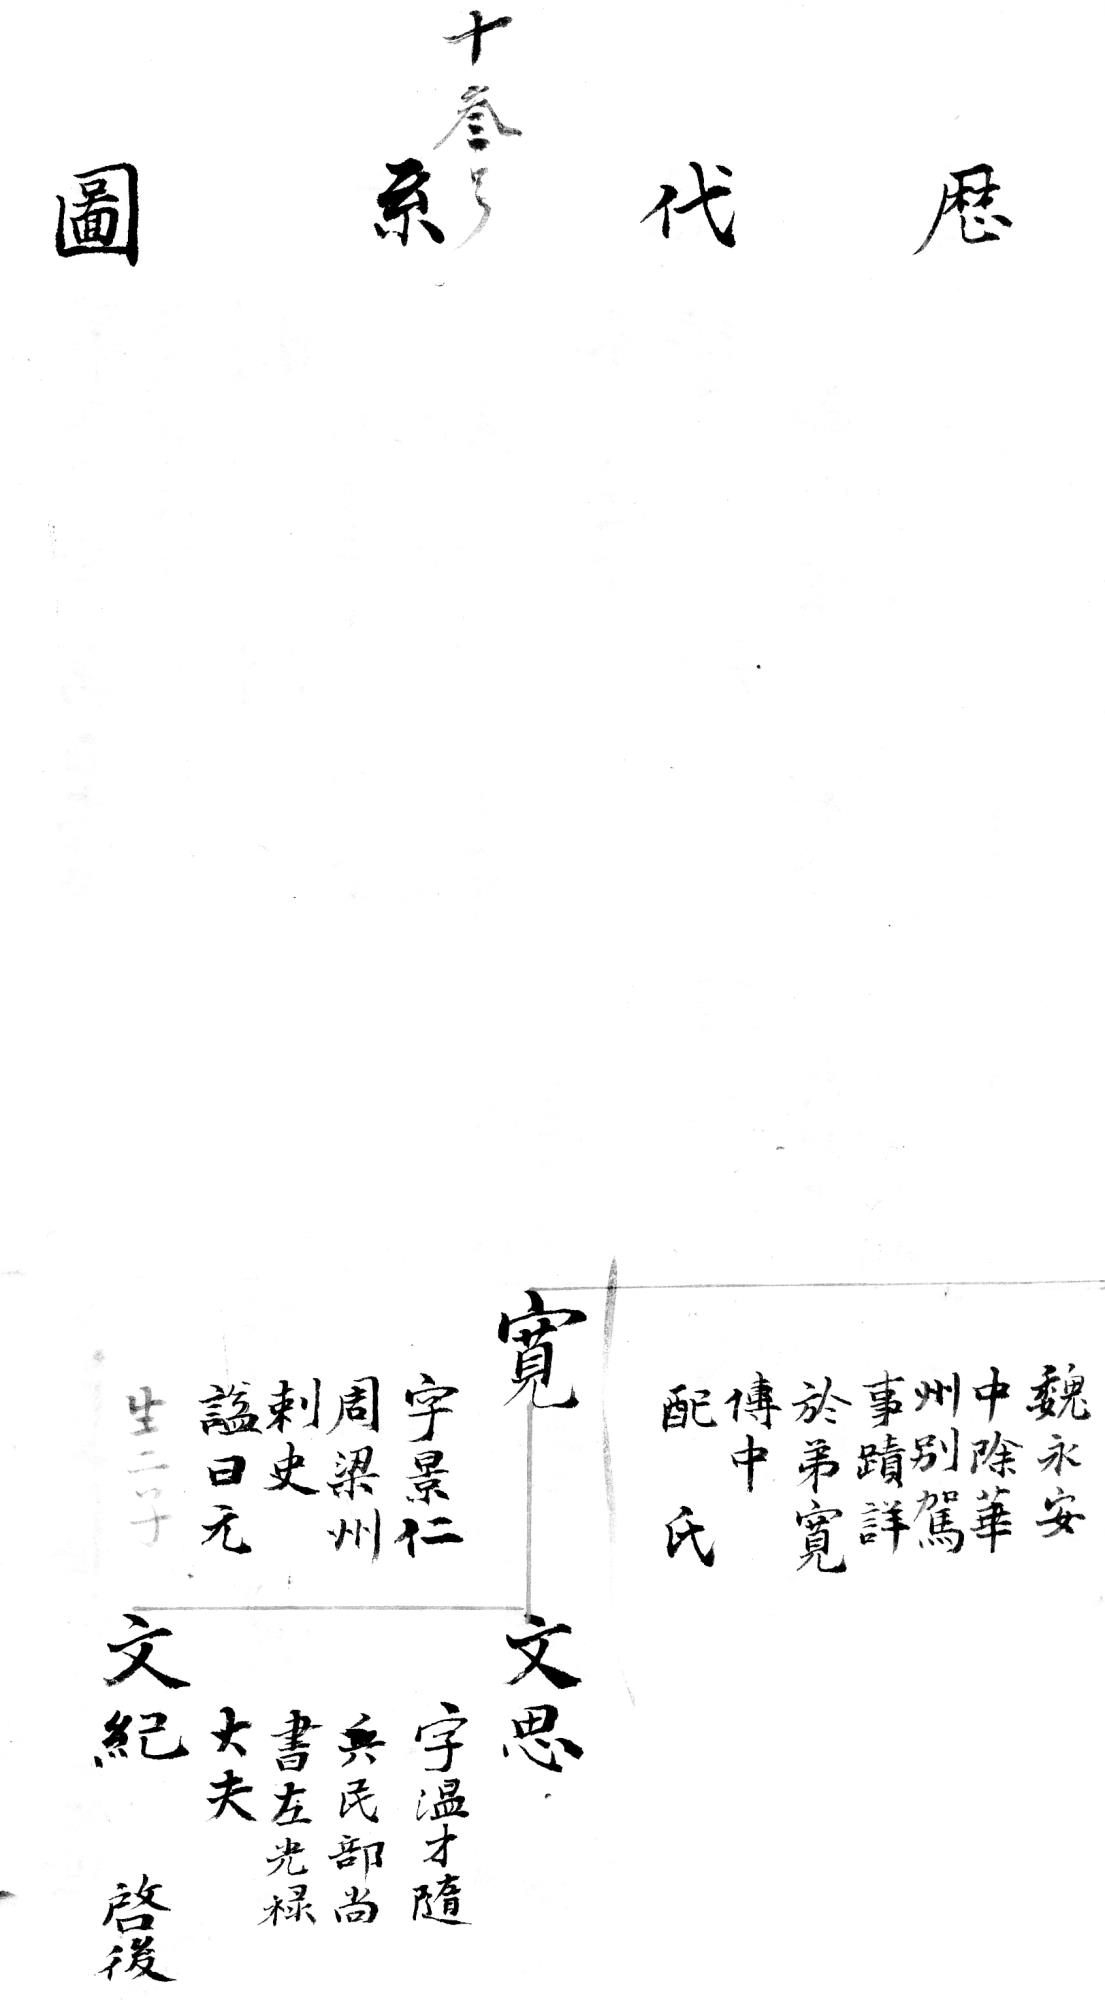 十叁号
歴代系圖
魏永安
中除華
州别駕
事蹟詳
於弟寛
傳中
配氏
寛
字景仁
周梁州
刺史
謚曰元
生二子
文思
字温才隨
兵民部尚
書左光禄
大夫
文紀
啓後